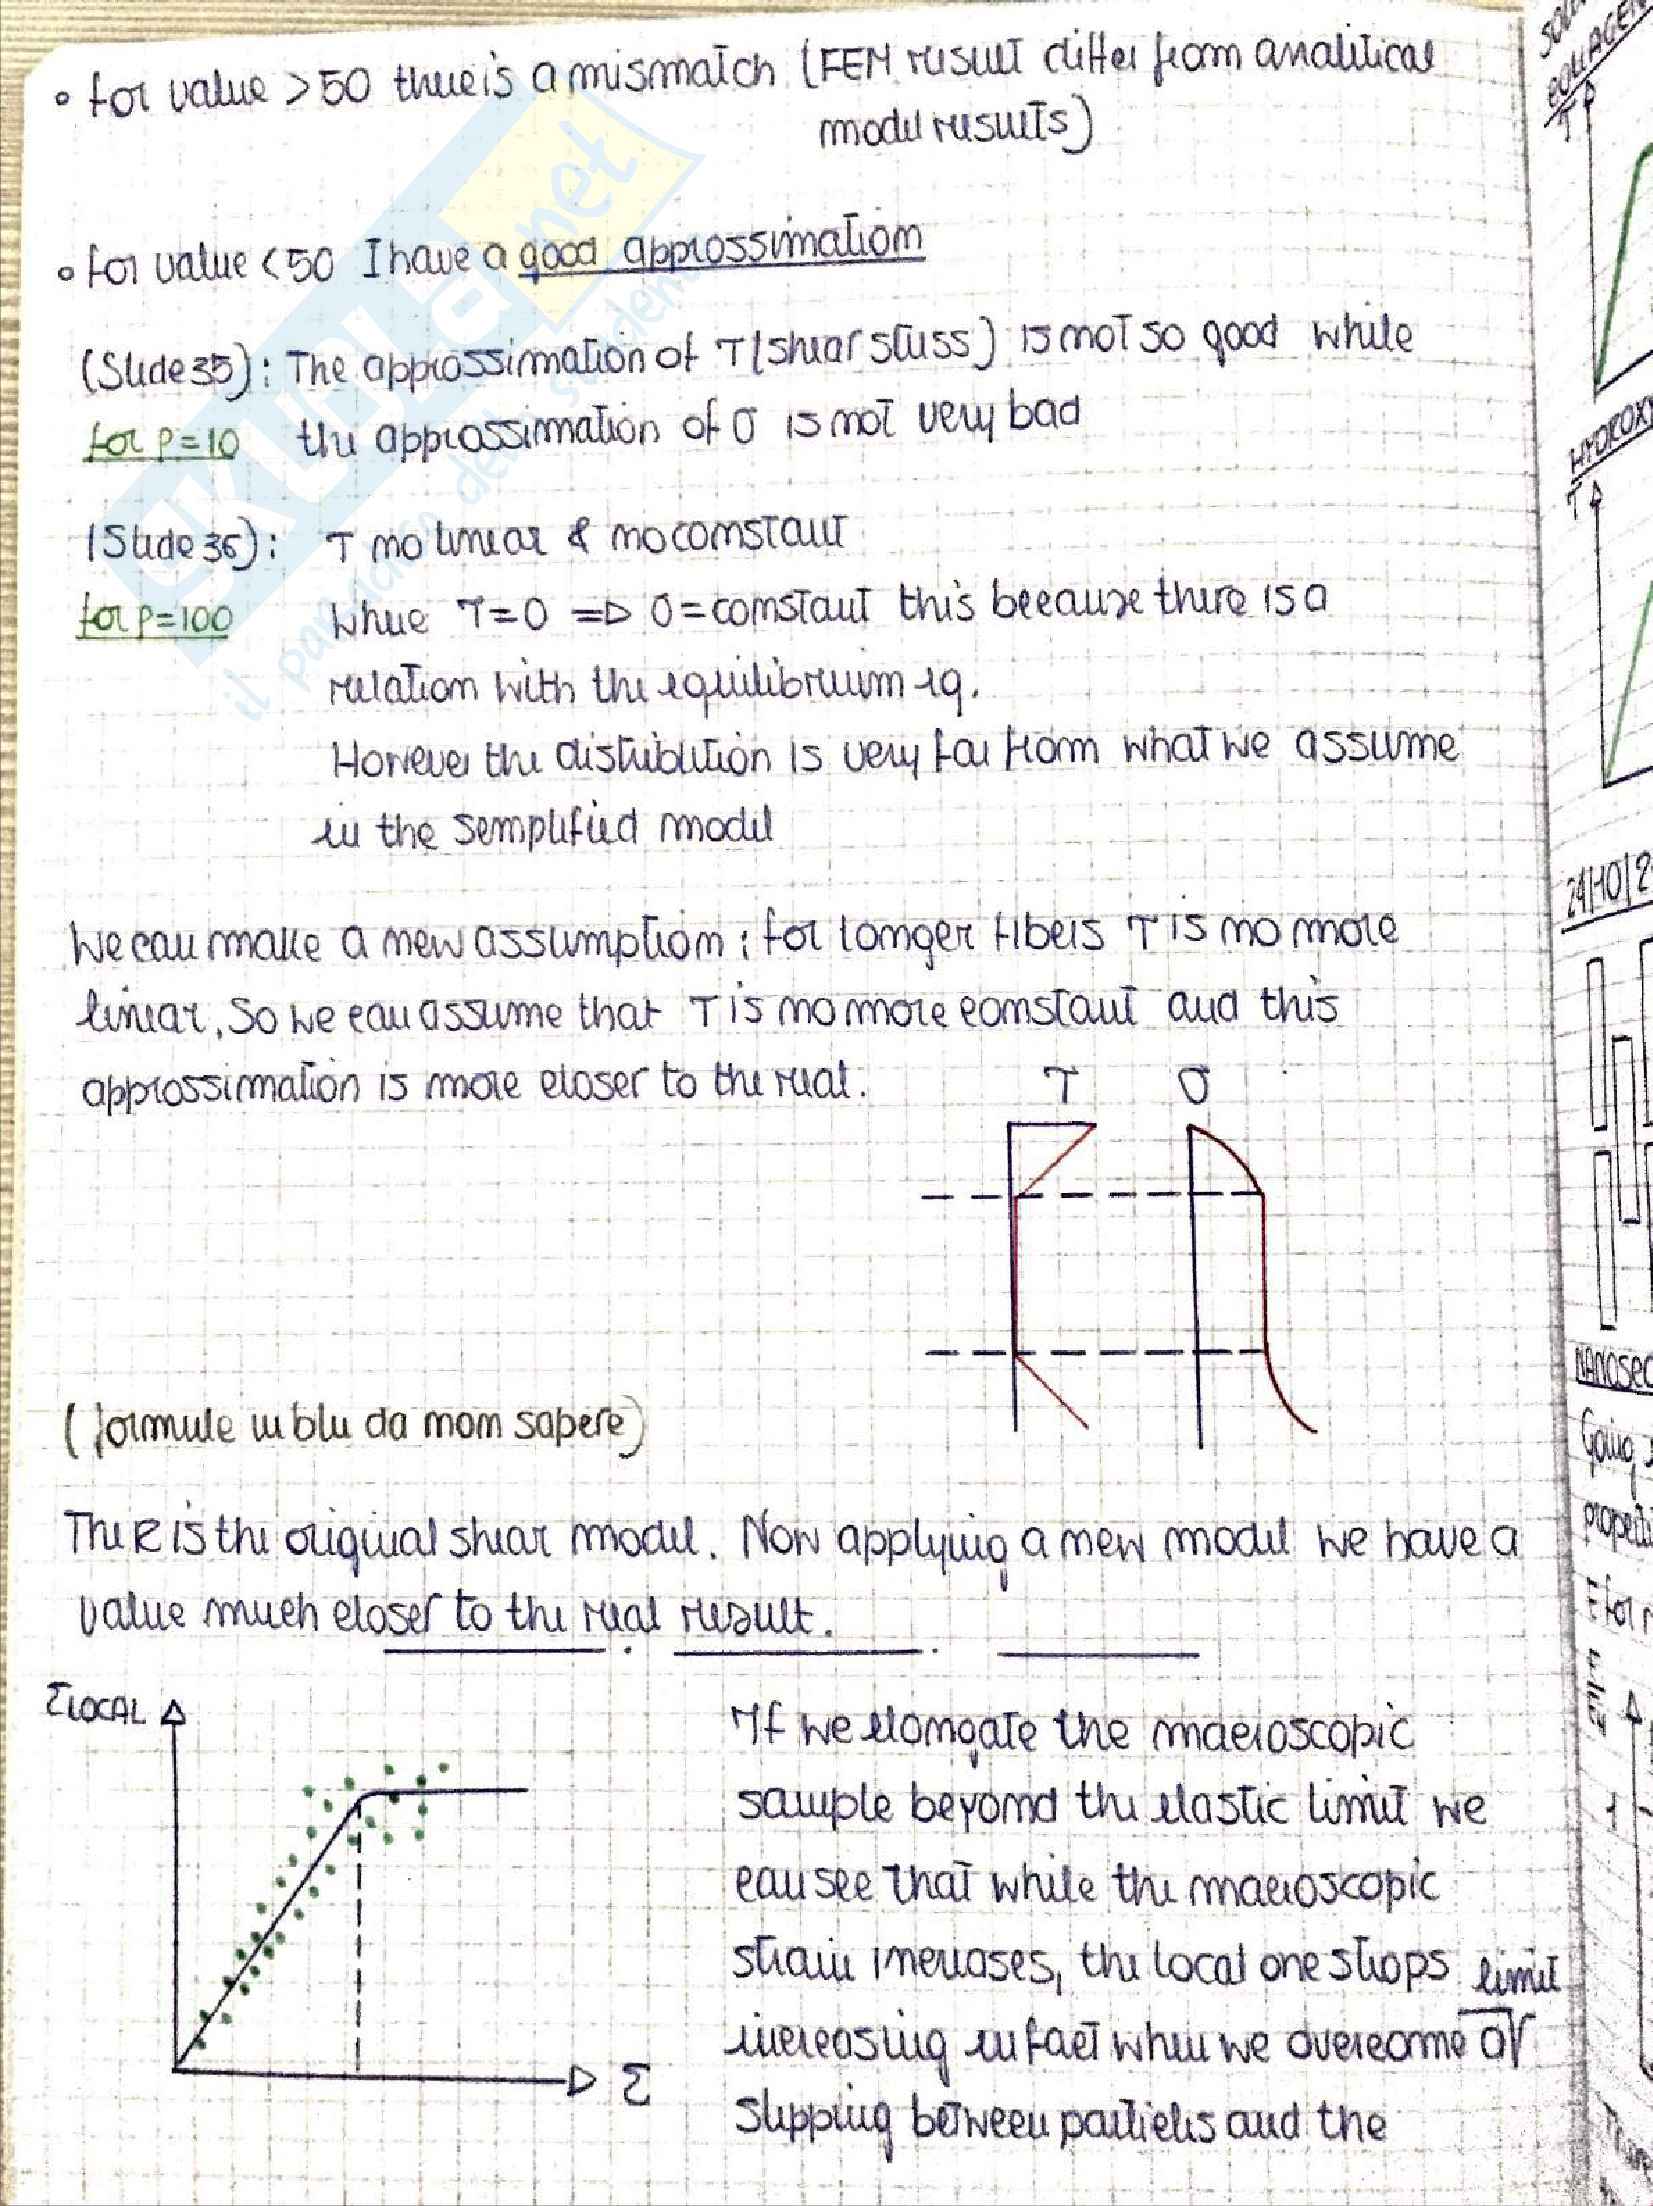 • for value > 50 there is a mismatch (FEM result differ from analitical
model results)
• for value < 50 I have a good approssimation
(Slide 35): The approssimation of τ (shear stress) is not so good while
for ρ=10 the approssimation of σ is not very bad
(Slide 36): τ no linear & no constant
for ρ=100 where τ=0 => σ=constant this because there is a
relation with the equilibrium eq.
However the distribution is very far from what we assume
in the semplified model
We can make a new assumption: for longer fibers τ is no more
linear, so we can assume that τ is no more constant and this
approssimation is more closer to the real.
τ σ
(formule in blu da non sapere)
The R is the original shear model. Now applying a new model we have a
value much closer to the real result.
ΣLOCAL
If we elongate the macroscopic
sample beyond the elastic limit we
can see that while the macroscopic
strain increases, the local one stops
increasing in fact when we overcome limit of
slipping between particles and the
Σ
SKUOLA.net
il paradiso dello studente
HYDROXY
24/10/2
NANOSEC
Going
properti
for